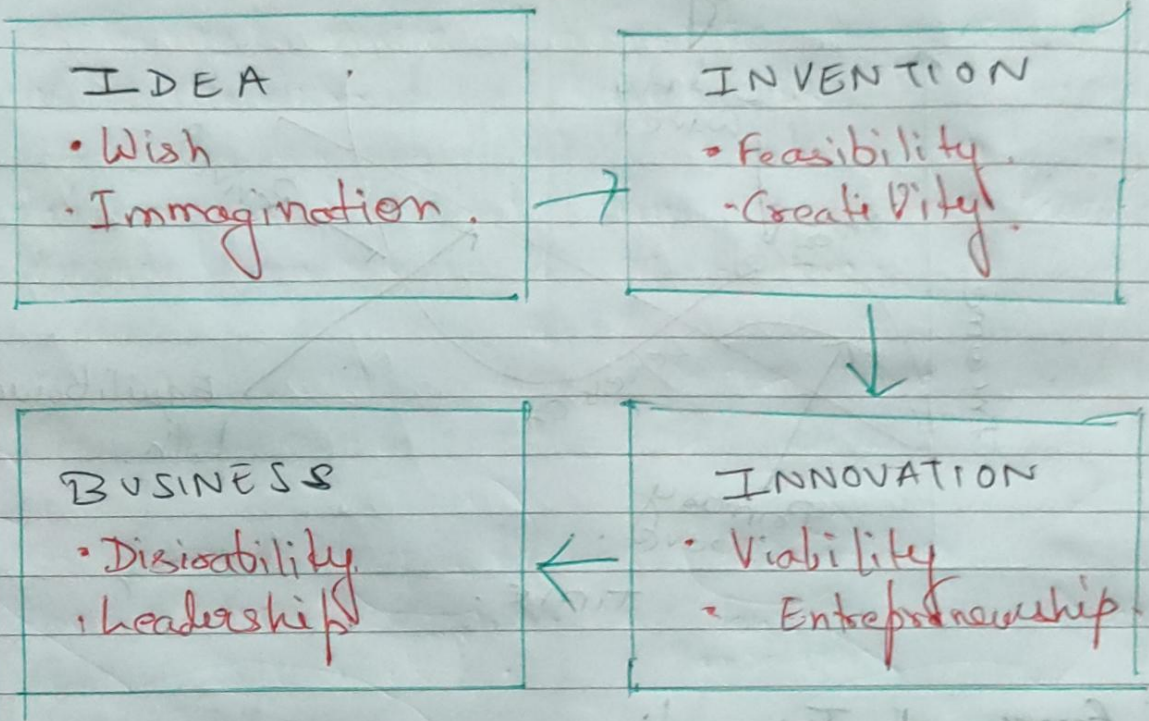 IDEA
• Wish
• Immagination.
INVENTION
• Feasibility.
• Creativity.
INNOVATION
• Viability
• Entreprtnewship.
BUSINESS
• Disirability.
• Leadership